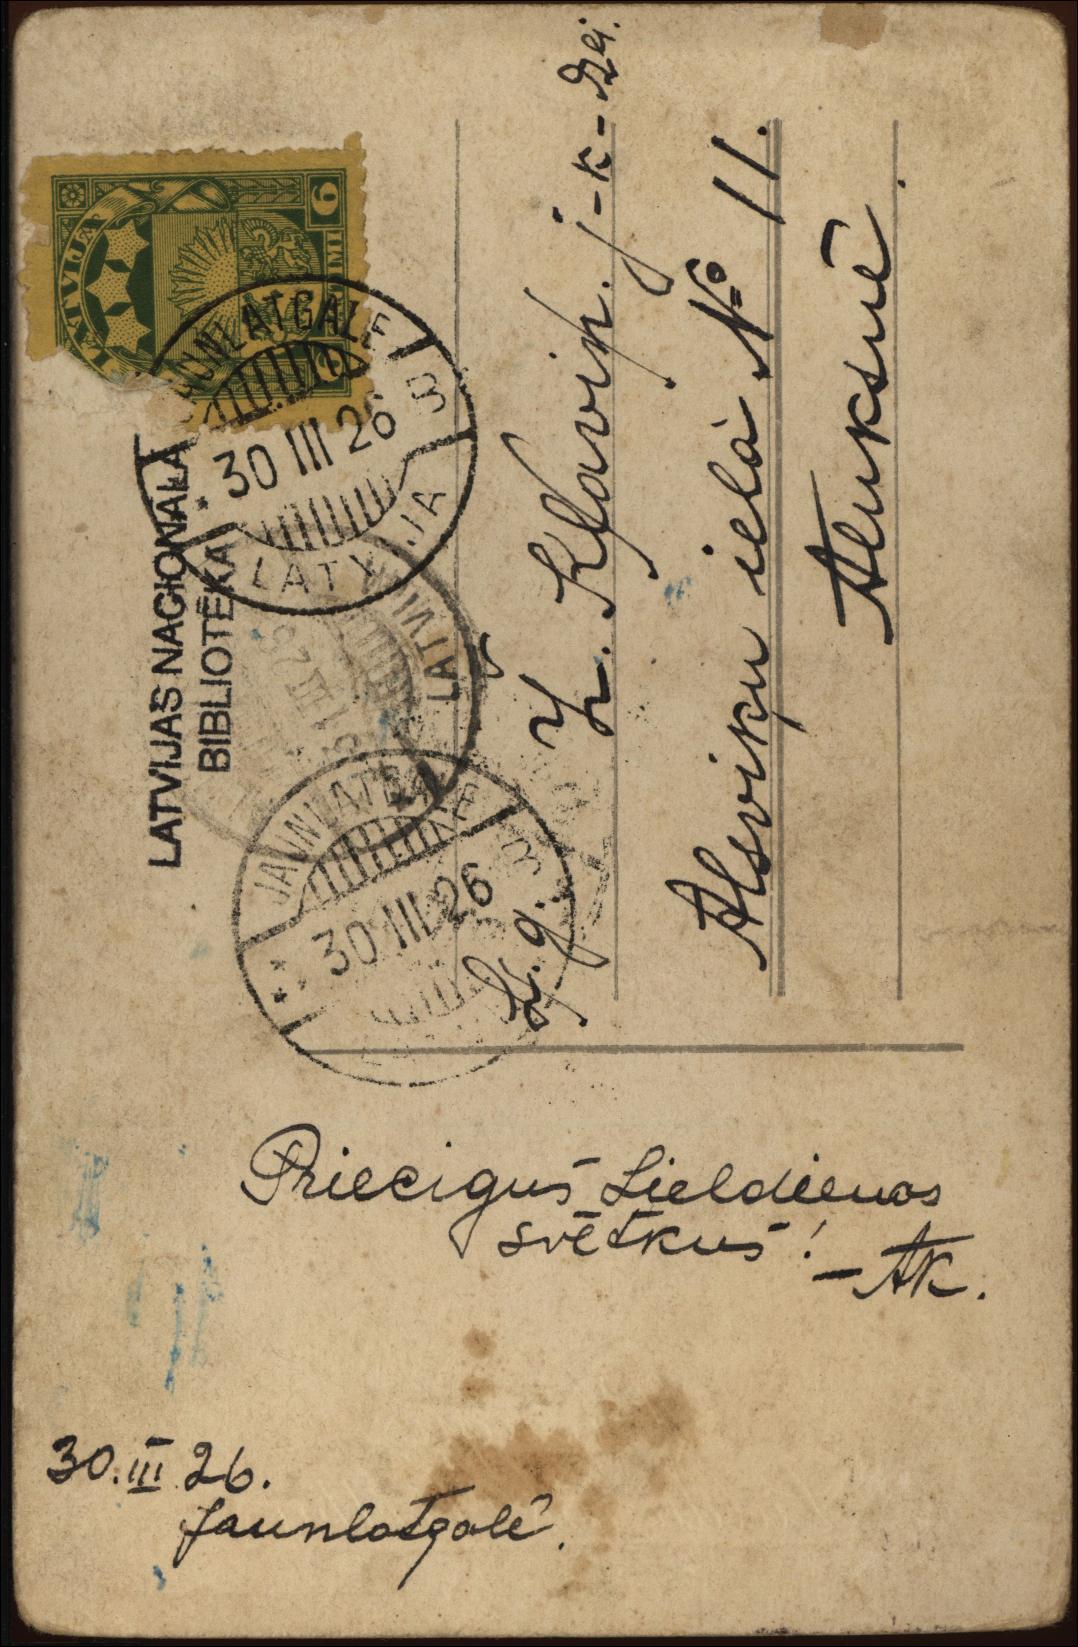 LATVIJA
6
6
JAUNLATGALE
30 III 26
B
LATVIJA
LATVIJAS NACIONĀLĀ
BIBLIOTĒKA
LATVI
JAUNLATGALE
30 III 26
B
Z. Kļaviņ. j-k-dzei.
Alsviķu ielā № 11.
Alūksnē.
Priecigus Lieldienas
svētkus!
— AK.
30.III 26.
Jaunlatgalē.